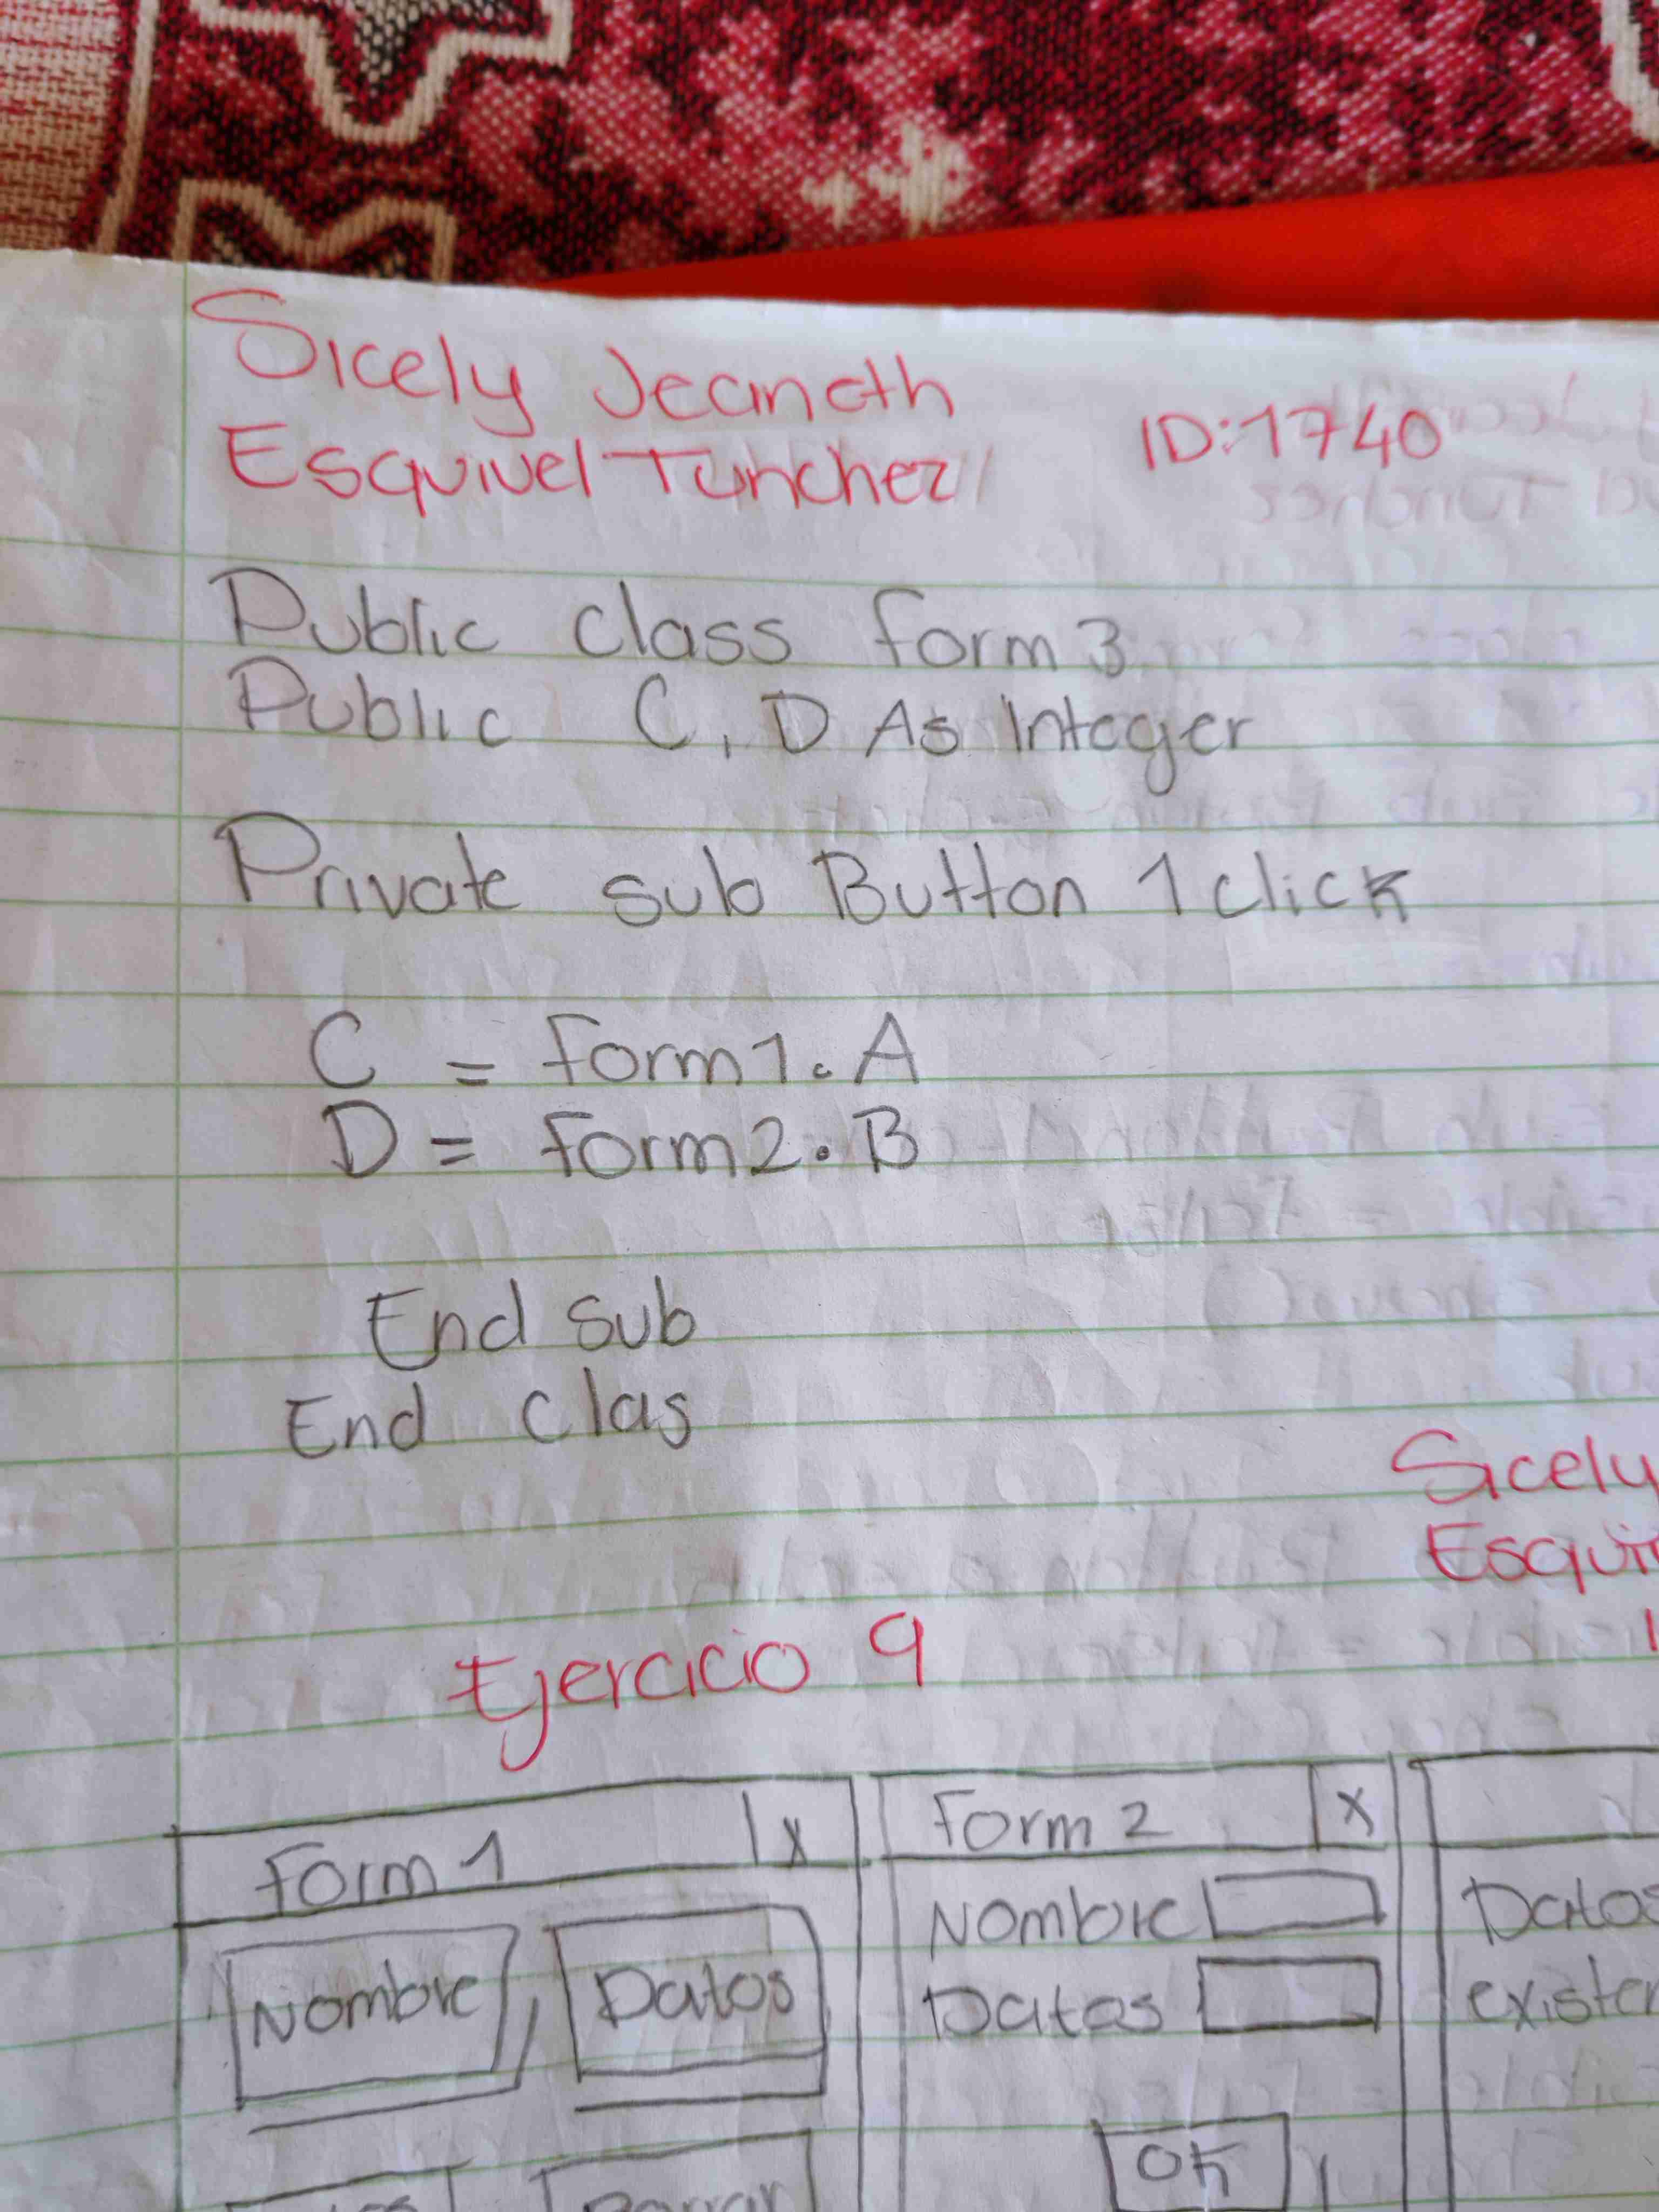 Sicely Jeaneth
Esquivel Tunchez
ID:1740
Public class form3
Public C, D As Integer
Private sub Button 1 click
C = form1.A
D = form2.B
End sub
End clas
Sicely
Esquiv
Ejercicio 9
Form 1 X
Form 2 X
Nombre Datos
Nombre
Datos
Datos
existen
OK
Borrar